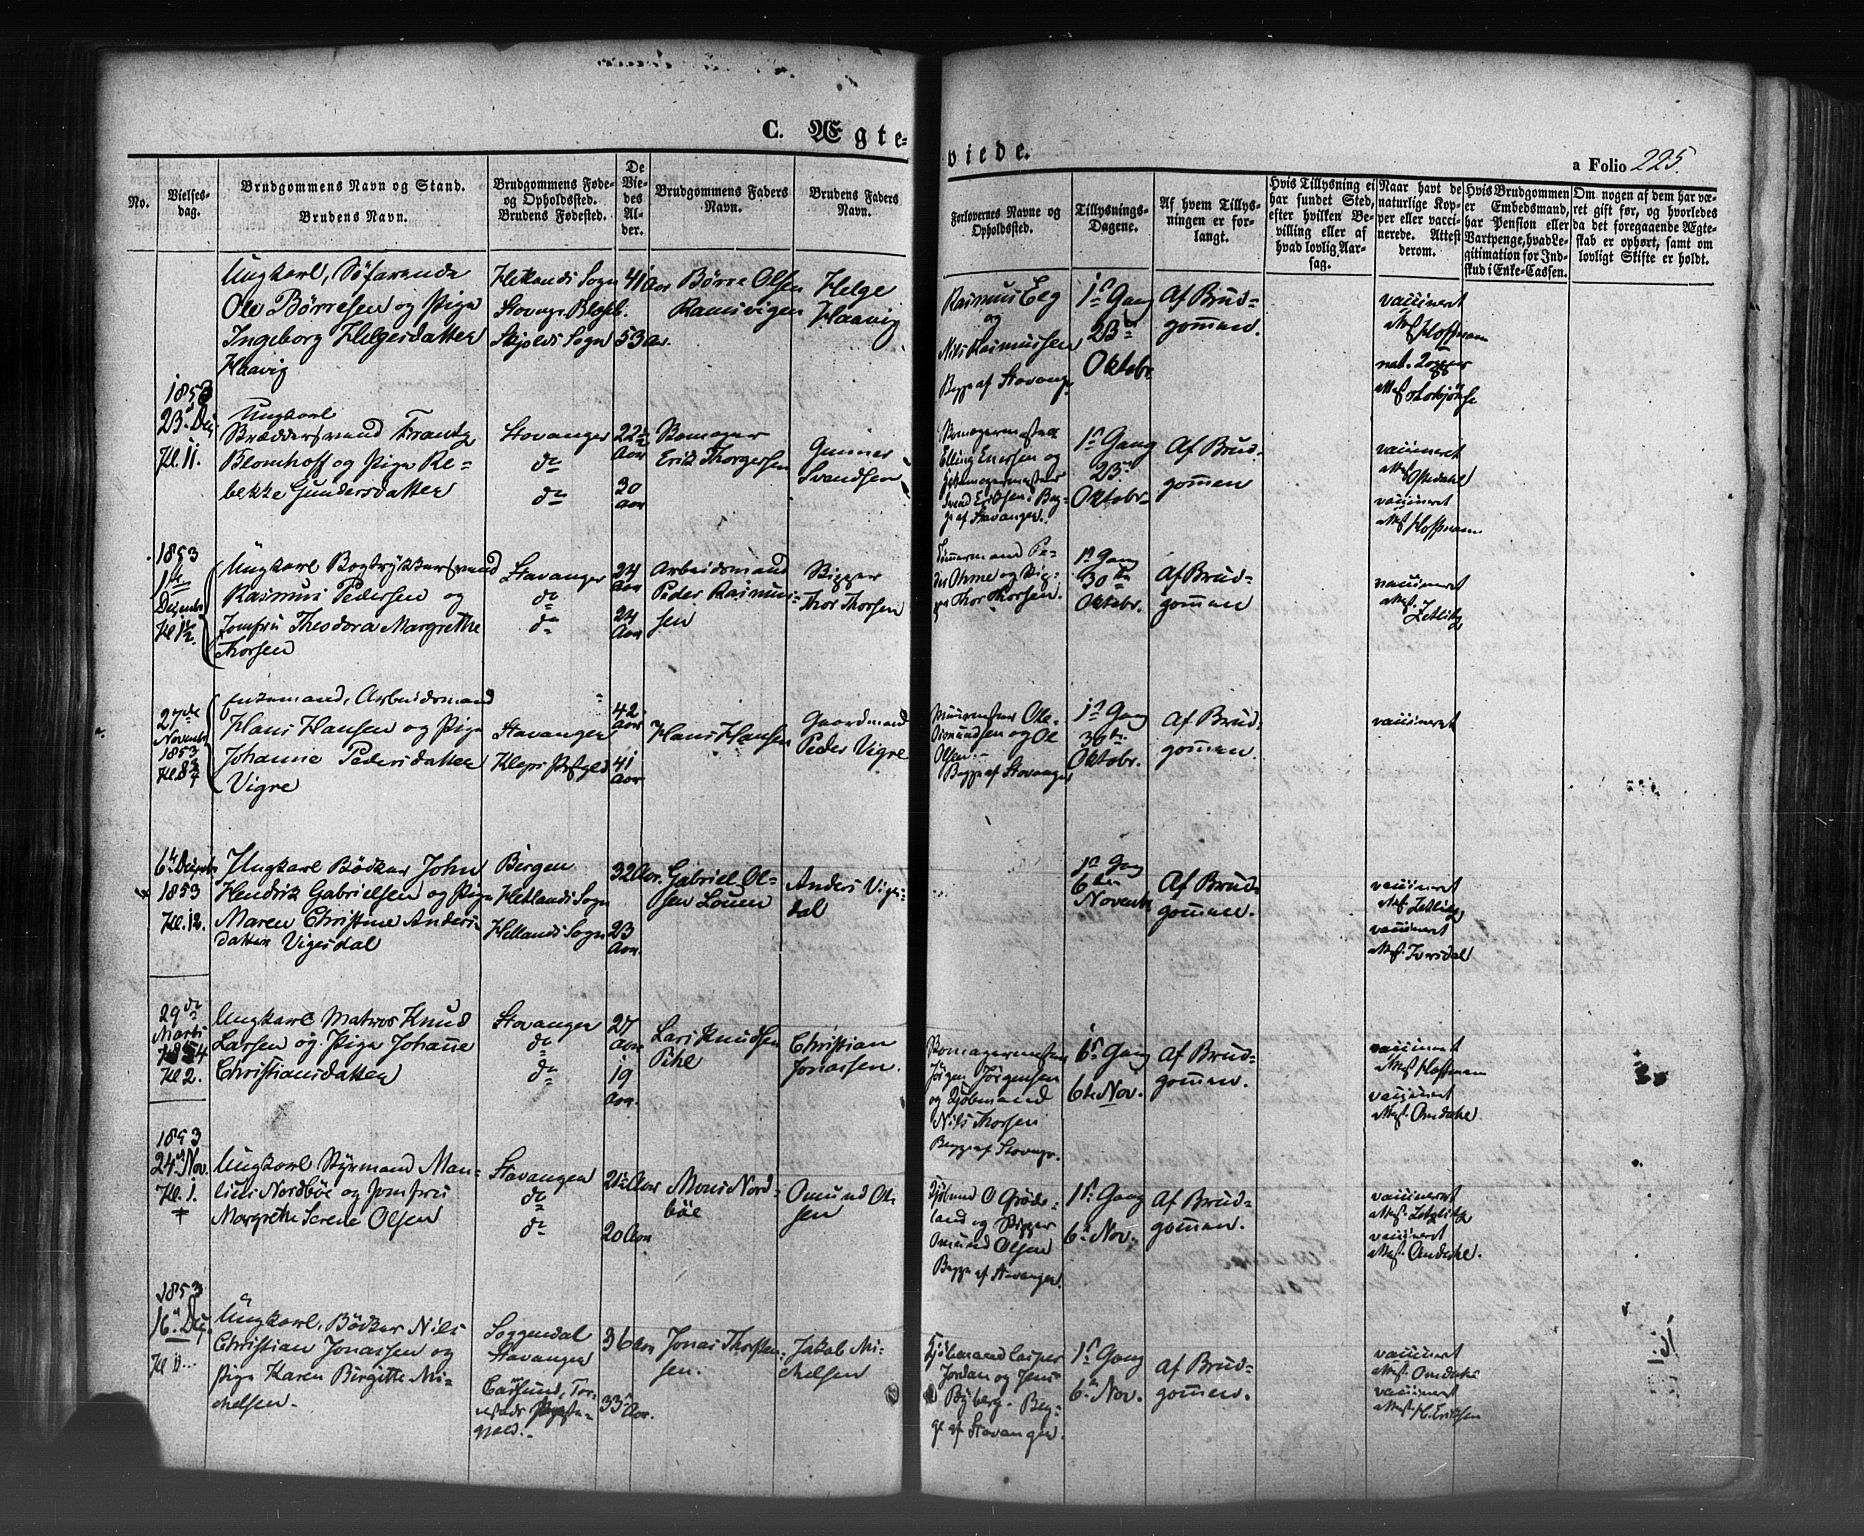 C. Ægte-
viede.
a Folio 225.
No.
Vielses-
dag.
Brudgommens Navn og Stand.
Brudens Navn.
Brudgommens Føde-
og Opholdssted.
Brudens Fødested.
De
Vie-
des
Al-
der.
Brudgommens Faders
Navn.
Brudens Faders
Navn.
Forlovernes Navne og
Opholdssted.
Tillysnings-
Dagene.
Af hvem Tillys-
ningen er for-
langt.
Hvis Tillysning ei
har fundet Sted,
efter hvilken Be-
villing eller af
hvad lovlig Aar-
sag.
Naar havt de
naturlige Kop-
per eller vacci-
nerede. Attest
derom.
Hvis Brudgommen
er Embedsmand,
har Pension eller
Vartpenge, hvad Le-
gitimation for Ind-
skud i Enke-Cassen.
Om nogen af dem har væ-
ret gift før, og hvorledes
da det foregaaende Ægte-
skab er ophørt, samt om
lovligt Skifte er holdt.
Ungkarl, Søfarende
Ole Børresen og Pige
Ingeborg Helgesdatter
Haavig
Hetlands Sogn
Skjolds Sogn
41 Aar
53 Aar
Børre Olsen
Ramsvigen
Helge
Haavig
Rasmus Eeg
og
Nils Rasmussen
Begge af Stavanger
1ste Gang
23de
Oktobr.
Af Brud-
gommen.
vaccineret
Attest Hoffmann
1853
23de Dec.
Kl. 11.
Ungkarl
Bræddersvend Frantz
Blomhoff og Pige Re-
bekke Gundersdatter
Stavanger
do
do
22½
Aar
30
Aar
Erik Thorgersen
Gunner
Svendsen
Elling Enersen og
Svend Eriksen, Beg-
ge af Stavanger.
1ste Gang
23de
Oktobr.
Af Brud-
gommen
vaccineret
Attest
Oftedahl
vaccineret
Attest Hoffmann
1853
1ste
Decembr
Kl. 1½.
Ungkarl Bogtrykkersvend
Rasmus Pedersen og
Jomfru Theodora Margrethe
Thorsen
Stavanger
do
do
24
Aar
24
Aar
Arbeidsmand
Peder Rasmus-
sen
Skipper
Thor Thorsen
Tømmermand Pe-
der Ohme og Skip-
per Thor Thorsen.
1ste Gang
30te
Oktobr.
Af Brud-
gommen
vaccineret
Attest
Zetlitz
27de
Novembr
1853
Kl. 8¾
Enkemand, Arbeidsmand
Hans Hansen og Pige
Johanne Pedersdatter
Vigre
Stavanger
Klepp Præstgjeld
42
Aar
41
Aar
Hans Hansen
Gaardmand
Peder Vigre
Muurmester Ole
Osmundsen og Ole
Olsen.
Begge af Stavanger
1ste Gang
30te
Oktobr.
Af Brud-
gommen.
vaccineret
6te Decembr
1853
Kl. 12.
Ungkarl Bødker John
Hendrik Gabrielsen og Pige
Maren Christine Anders-
datter Vigesdal
Bergen
Hetlands Sogn
Hetlands Sogn
32 Aar.
23
Aar.
Gabriel Ol-
sen Louen
Anders Viges-
dal
1ste Gang
6te
Novembr
Af Brud-
gommen.
vaccineret
Attest Zetlitz
vaccineret
Attest Iversdal
29de
Marts
1854
Kl. 2.
Ungkarl Matros Knud
Larsen og Pige Johanne
Christiansdatter
Stavanger
do
do
27
Aar
19
Aar.
Lars Knudsen
Pihl
Christian
Jonassen.
Skomagermester
Jørgen Jørgensen
og Kjøbmand
Nils Thorsen
Begge af Stavanger.
1ste Gang
6te Nov.
Af Brud-
gommen.
vaccineret
Attest Hoffmann
vaccineret
Attest Omdahl
1853
24de Nov.
Kl. 1.
Ungkarl Styrmand Mau-
Nordbøe og Jomfru
Margrethe Serene Olsen
Stavanger
do
do
20 Aar
Mons Nord-
bøe
Omund Ol-
sen
Kjøbmand O Grøde-
land og Skipper
Omund Olsen
Begge af Stavanger
1ste Gang
6te Nov.
Af Brud-
gommen.
vaccineret
Attest Zetlitz
vaccineret
Attest Omdahl.
1853
16de Dec.
Kl. 11.
Ungkarl, Bødker Nils
Christian Jonassen og
Pige Karen Birgitte Mi-
chelsen.
Soggendal
Stavanger
Tor-
vestads Præste-
gjeld.
36 Aar
33 Aar.
Jonas Thorsten-
sen.
Jakob Mi-
chelsen
Kjøbmand Casper
Jordan og Jens
Byberg. Beg-
ge af Stavanger.
1ste Gang
6te Nov.
Af Brud-
gommen.
vaccineret
Attest Omdahl
vaccineret
Attest H. Eriksen